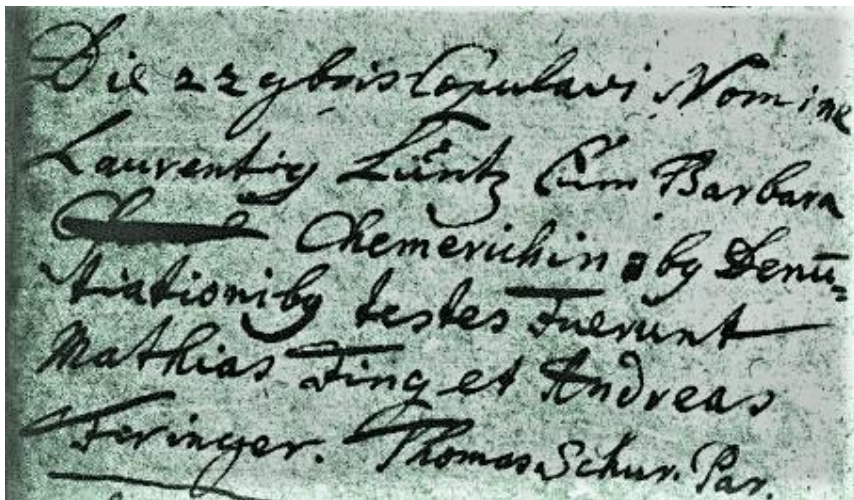 Die 22 9bris Copulavi Nomine
Laurentig Lüntz Cum Barbara
Chemerichin 3bg Denū-
tiationibg testes Fuerunt
Mathias Fing et Andreas
Feringer. Thomas Schur. Par